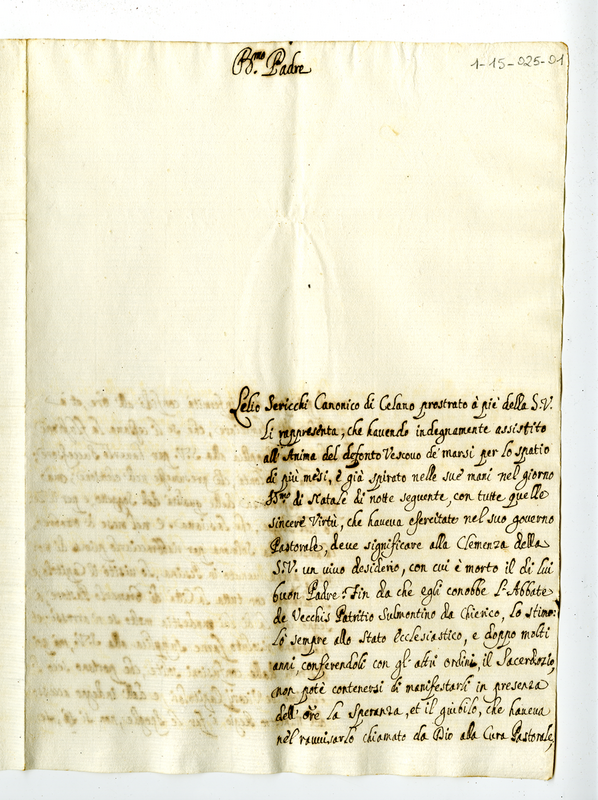 B.mo Padre
1-15-025-01
Lelio Sericchi Canonico di Celano prostrato à piè della S.V.
Li rappresenta, che havendo indegnamente assistito
all'Anima del defonto Vescovo de' marsi per lo spatio
di più mesi, e già spirato nelle sue mani nel giorno
SS.mo di Natale di notte seguente, con tutte quelle
sincere Virtù, che haveva esercitate nel suo governo
Pastorale, deve significare alla Clemenza della
S.V. un vivo desiderio, con cui è morto il di lui
buon Padre: Fin da che egli conobbe L'Abbate
de Vecchis Patritio Sulmontino da Chierico, Lo stimo:
Lò sempre allo Stato Ecclesiastico, e doppo molti
anni, conferendoli con gl'altri ordini, il Sacerdozio,
non potè contenersi di manifestarli in presenza
dell' ore La Speranza, et il giubilo, che haveva
nel ravvisarlo chiamato da Dio alla Cura Pastorale,